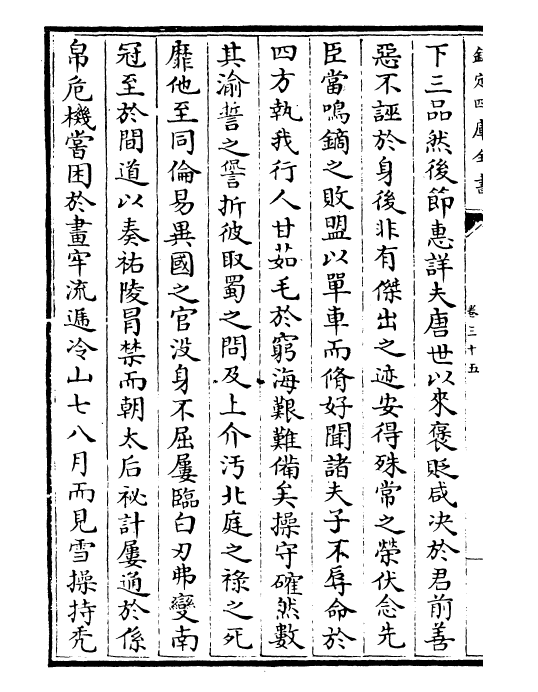 欽定四庫全書
卷三十五
下三品然後節惠詳夫唐世以來褒貶咸決於君前善
惡不誣於身後非有傑出之迹安得殊常之榮伏念先
臣當鳴鏑之敗盟以單車而脩好聞諸夫子不辱命於
四方執我行人甘茹毛於窮海艱難備矣操守確然數
其渝誓之諐折彼取蜀之問及上介汚北庭之禄之死
靡他至同倫易異國之官没身不屈屢臨白刃弗變南
冠至於間道以奏祐陵冐禁而朝太后祕計屢通於係
帛危機嘗困於畫牢流遞冷山七八月而見雪操持秃